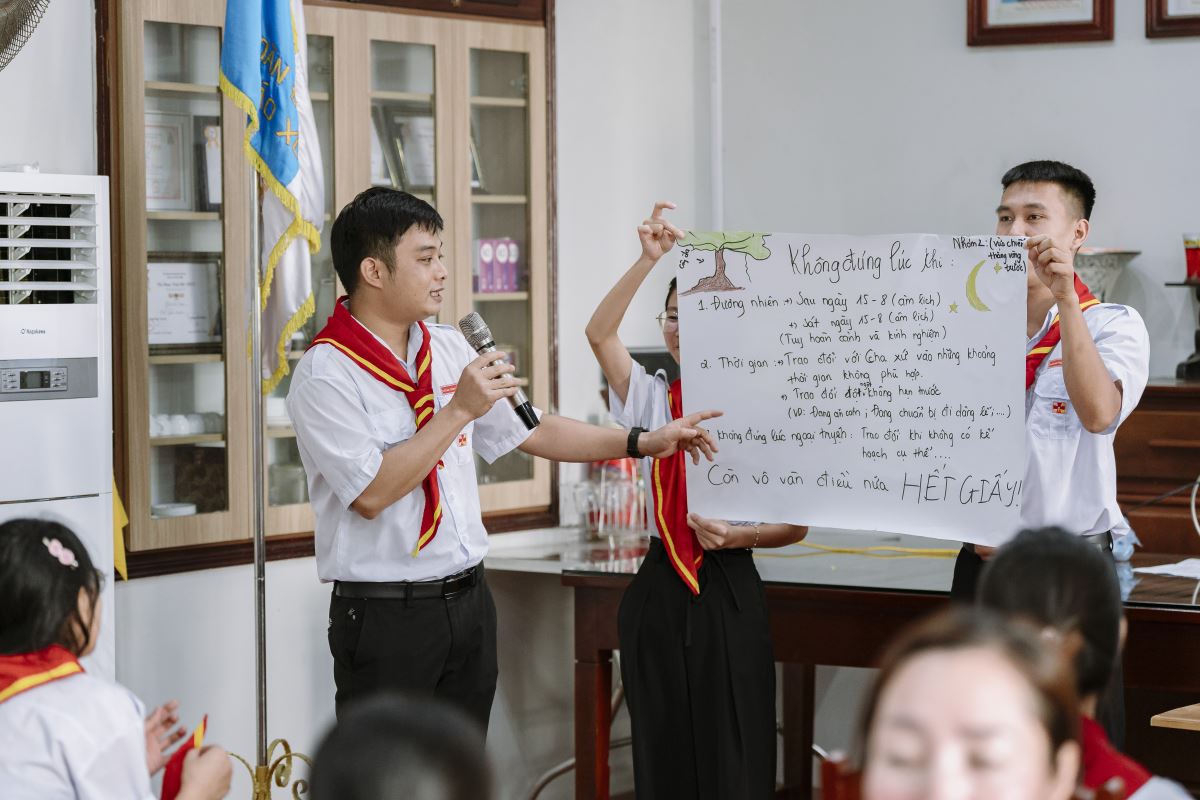 ĐOÀN
Không đúng lúc khi :
Nhóm 2: (vừa chiến
thắng vòng
trước)
1. Đương nhiên → Sau ngày 15-8 (âm lịch)
→ Sát ngày 15-8 (âm lịch)
(Tuỳ hoàn cảnh và kinh nghiệm)
2. Thời gian : → Trao đổi với Cha xứ vào những khoảng
thời gian không phù hợp.
→ Trao đổi đột ngột không hẹn trước
(VD: Đang ăn cơm ; Đang chuẩn bị đi dâng lễ,....)
không đúng lúc ngoại truyện : Trao đổi khi không có kế
hoạch cụ thể....
Còn vô vàn điều nữa HẾT GIẤY!
Nagakawa